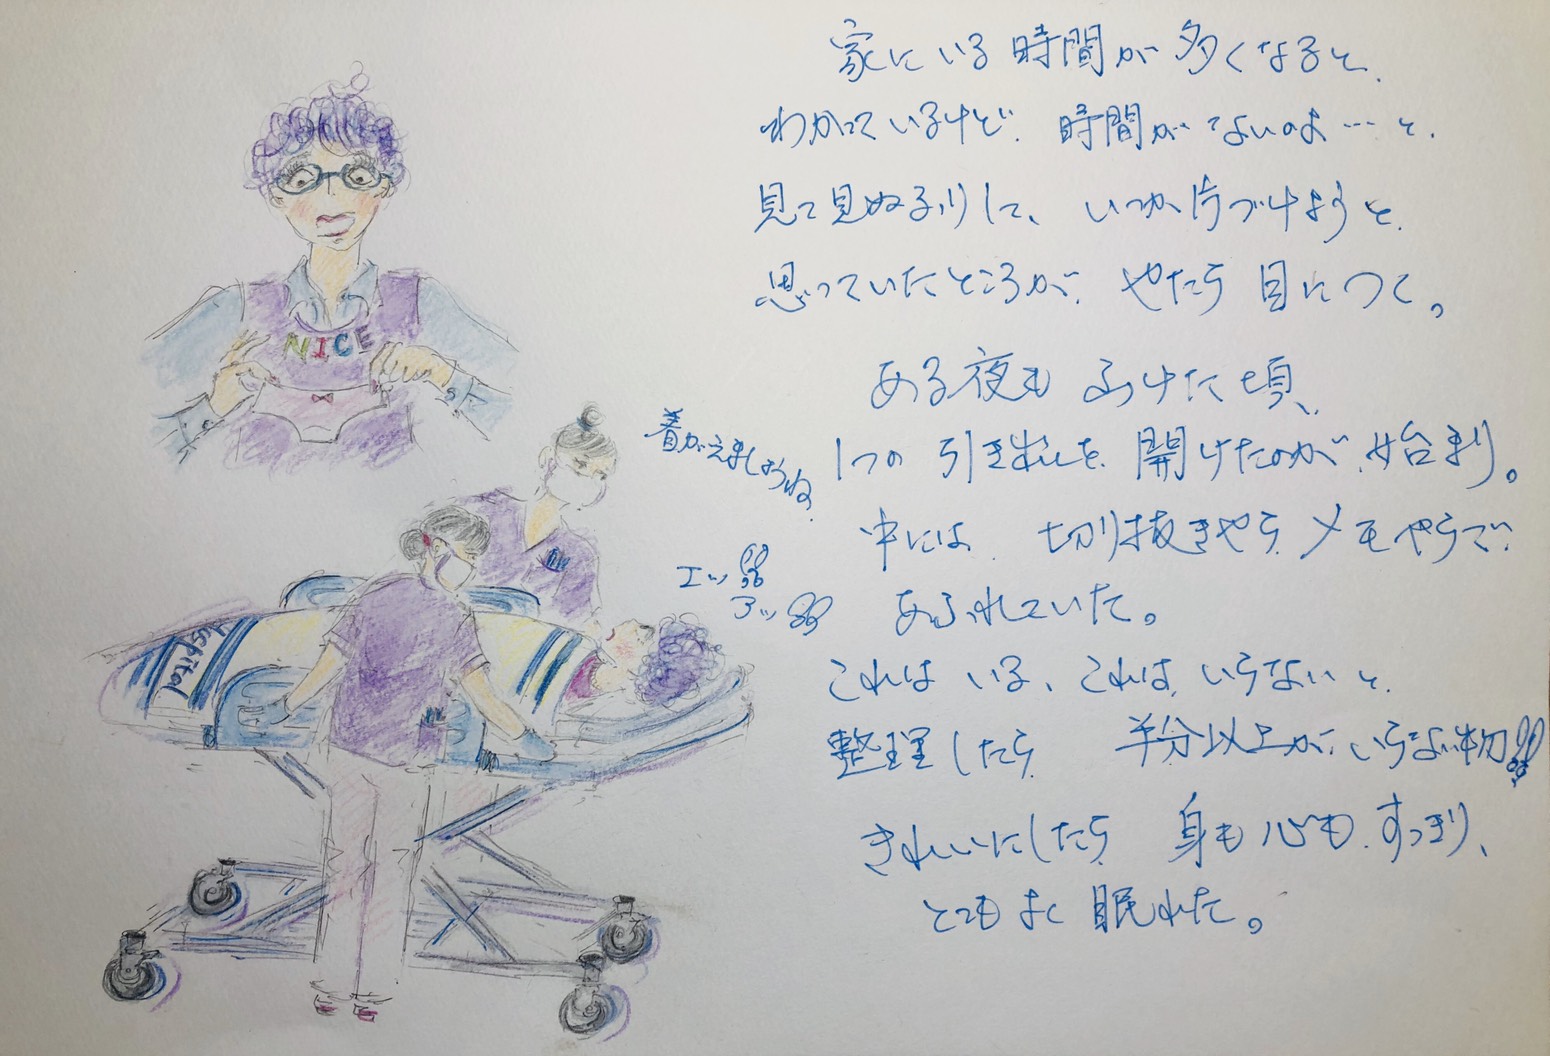 家にいる時間が多くなると、
わかっているけど、時間がないのよ…と、
見て見ぬふりして、いつか片づけようと、
思っていたところが、やたら目につく。
ある夜もふけた頃、
1つの引き出しを開けたのが始まり。
中には、切り抜きやらメモやらで、
あふれていた。
これはいる、これはいらないと、
整理したら 半分以上が、いらない物!!
きれいにしたら 身も心もすっきり、
とてもよく眠れた。
NICE
着がえましょうね
エッ!!
アッ!!
Hospital